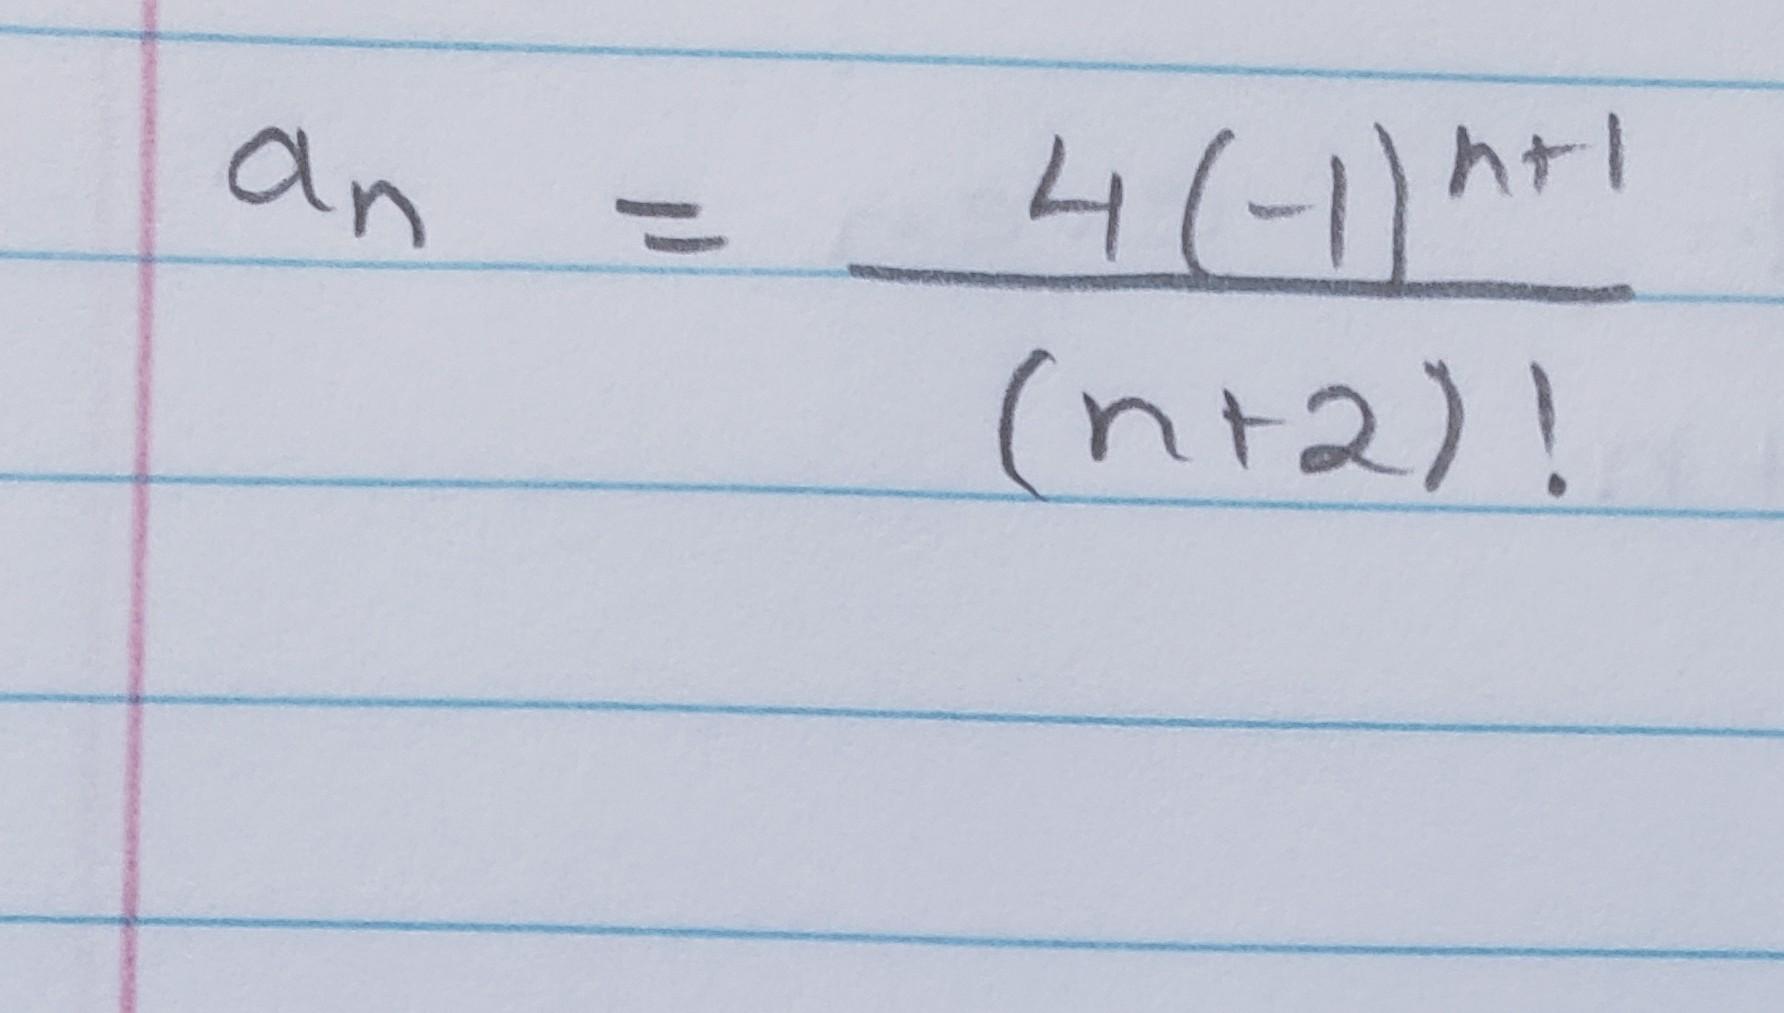 aₙ = 4(-1)ⁿ⁺¹ / (n+2)!